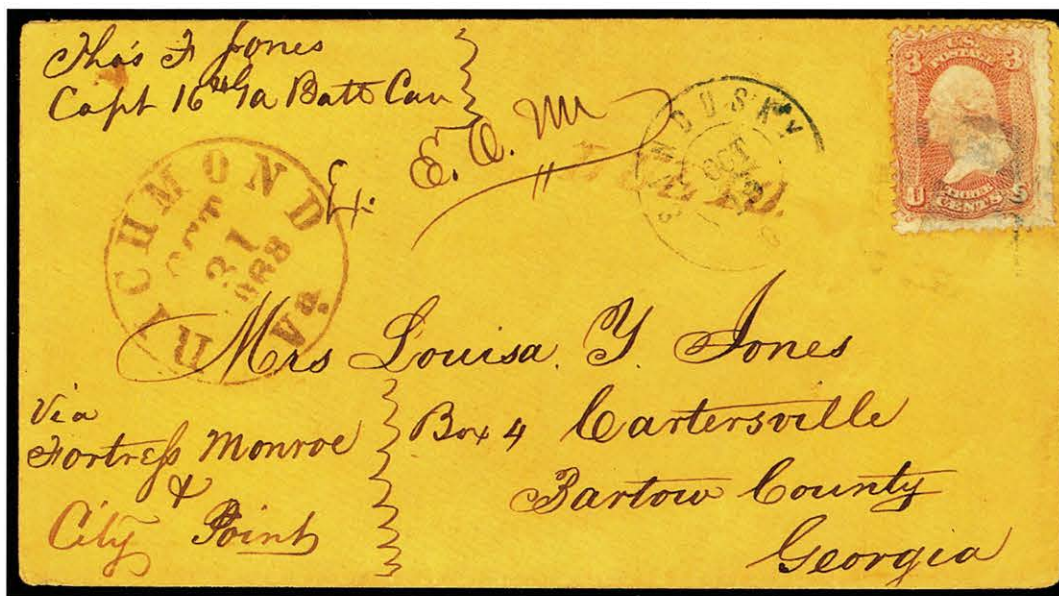 Thos F Jones
Capt 16th Ga Batt Cav
Ex. E. A. M
SANDUSKY
OCT
U.S.
POSTAGE
3 3
U THREE S
CENTS
RICHMOND
OCT
31
1863
Va.
Mrs Louisa. Y. Jones
Box 4 Cartersville
Bartow County
Georgia
Via
Fortress Monroe
&
City Point